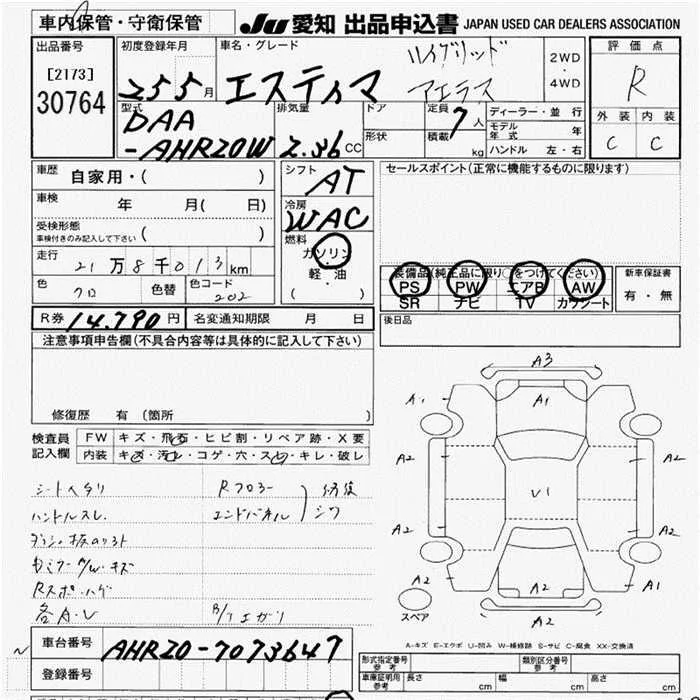 車内保管・守衛保管 JU 愛知 出品申込書 JAPAN USED CAR DEALERS ASSOCIATION
出品番号 初度登録年月 車名・グレード ハイブリッド 2WD 評価点
[2173] 25 5月 エスティマ アエラス ・ R
30764 4WD
型式 排気量 ドア 定員 7人 ディーラー・並行 外装 内装
DAA モデル年式 年 C C
-AHR20W 2.36 CC 形状 積載 kg ハンドル 左・右
車歴 自家用・( ) シフト AT セールスポイント(正常に機能するものに限ります)
車検 年 月( 日) 冷房 WAC
受検形態 ( )
車検付きのみ記入して下さい 燃料
走行 21万8千013km ガソリン
軽・油 装備品(純正品に限り○をつけてください) 新車保証書
色 クロ 色替 色コード 202 ( ・ ) PS PW エアB AW 有・無
SR ナビ TV カワシート
R券 14,790円 名変通知期限 月 日 後日品
注意事項申告欄(不具合内容等は具体的に記入して下さい)
修復歴 有(箇所
検査員 FW キズ・飛石・ヒビ割・リペア跡・X要
記入欄 内装 キズ・汚レ・コゲ・穴・スレ・キレ・破レ
シートヘタリ Rフロアー 修復
ハンドルスレ エンドパネル シワ
各A・U
A3
A1 A1
A2 A2
U1
A2 A2
A2 A2 A1
A2
スペア
A-キズ E-エクボ U-凹み W-補修跡 S-サビ C-腐食 XX-交換済
車台番号 AHR20-7073647
登録番号
形式指定番号 参考 類別区分番号 参考
車庫証明用 参考 長さ cm 幅 cm 高さ cm